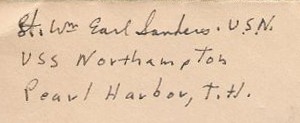 Lt. Wm Earl Sanders. U.S.N.
USS Northampton
Pearl Harbor, T.H.